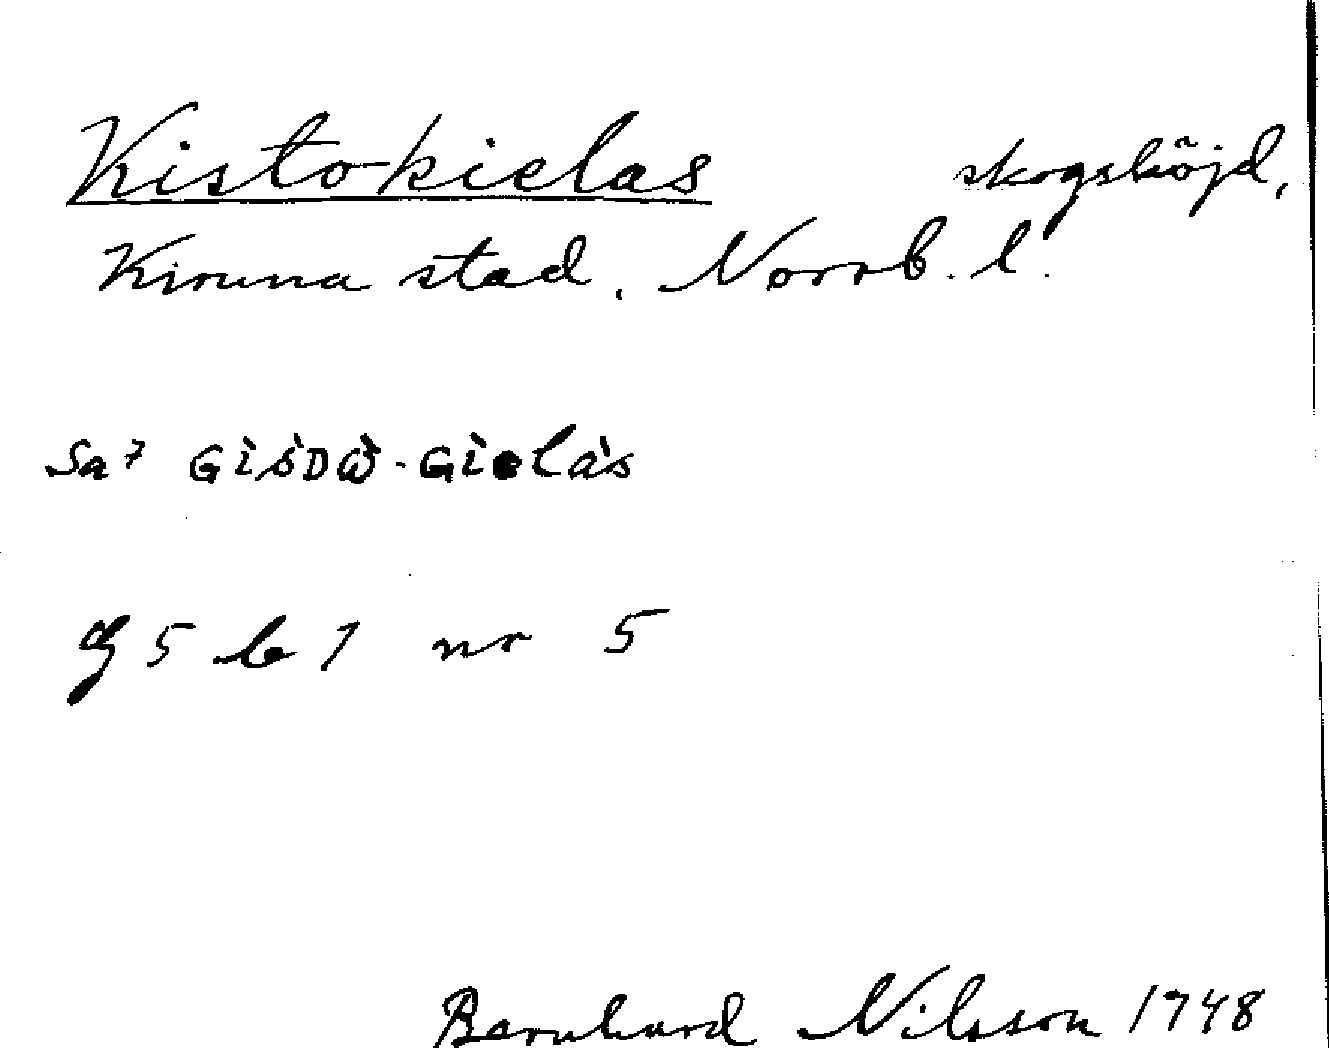 Kistokielas skogshöjd,
Kiruna stad, Norrb. l.
Sa7
5 b 7 nr 5
Bernhard Nilsson 1948